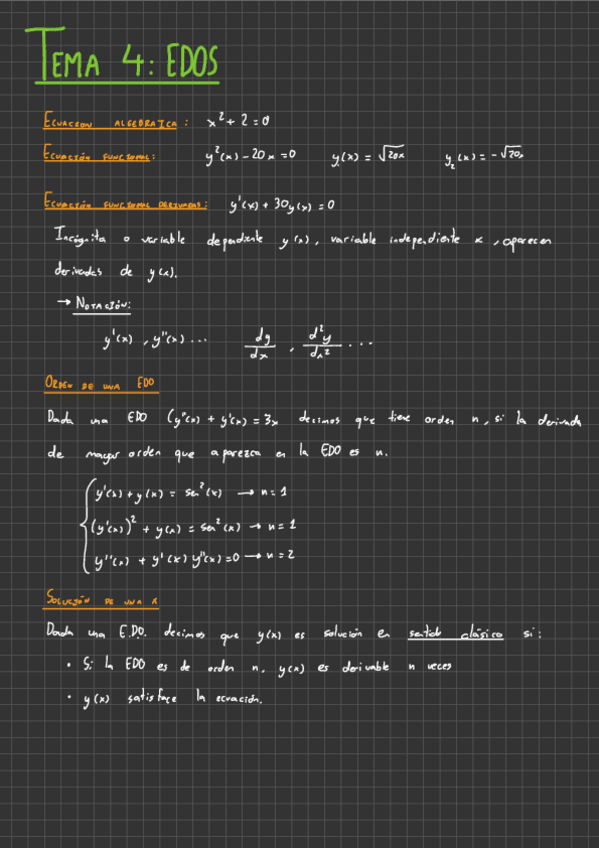 TEMA 4: EDOS
ECUACION ALGEBRAICA: x² + 2 = 0
ECUACIÓN FUNCIONAL: y²(x) - 20x = 0 y₁(x) = √20x y₂(x) = -√20x
ECUACIÓN FUNCIONAL DERIVADAS: y'(x) + 30y(x) = 0
Incógnita o variable dependiente y(x), variable independiente x, aparecen
derivadas de y(x).
→ NOTACIÓN:
y'(x), y''(x) ... dy/dx, d²y/dx² ...
ORDEN DE UNA EDO
Dada una EDO (y''(x) + y'(x) = 3x decimos que tiene orden n, si la derivada
de mayor orden que aparezca en la EDO es n.
y'(x) + y(x) = sen²(x) → n = 1
(y'(x))² + y(x) = sen²(x) → n = 1
y''(x) + y'(x) y''(x) = 0 → n = 2
SOLUCIÓN DE UNA
Dada una E.D.O. decimos que y(x) es solución en sentido clásico si:
• Si la EDO es de orden n, y(x) es derivable n veces
• y(x) satisface la ecuación.